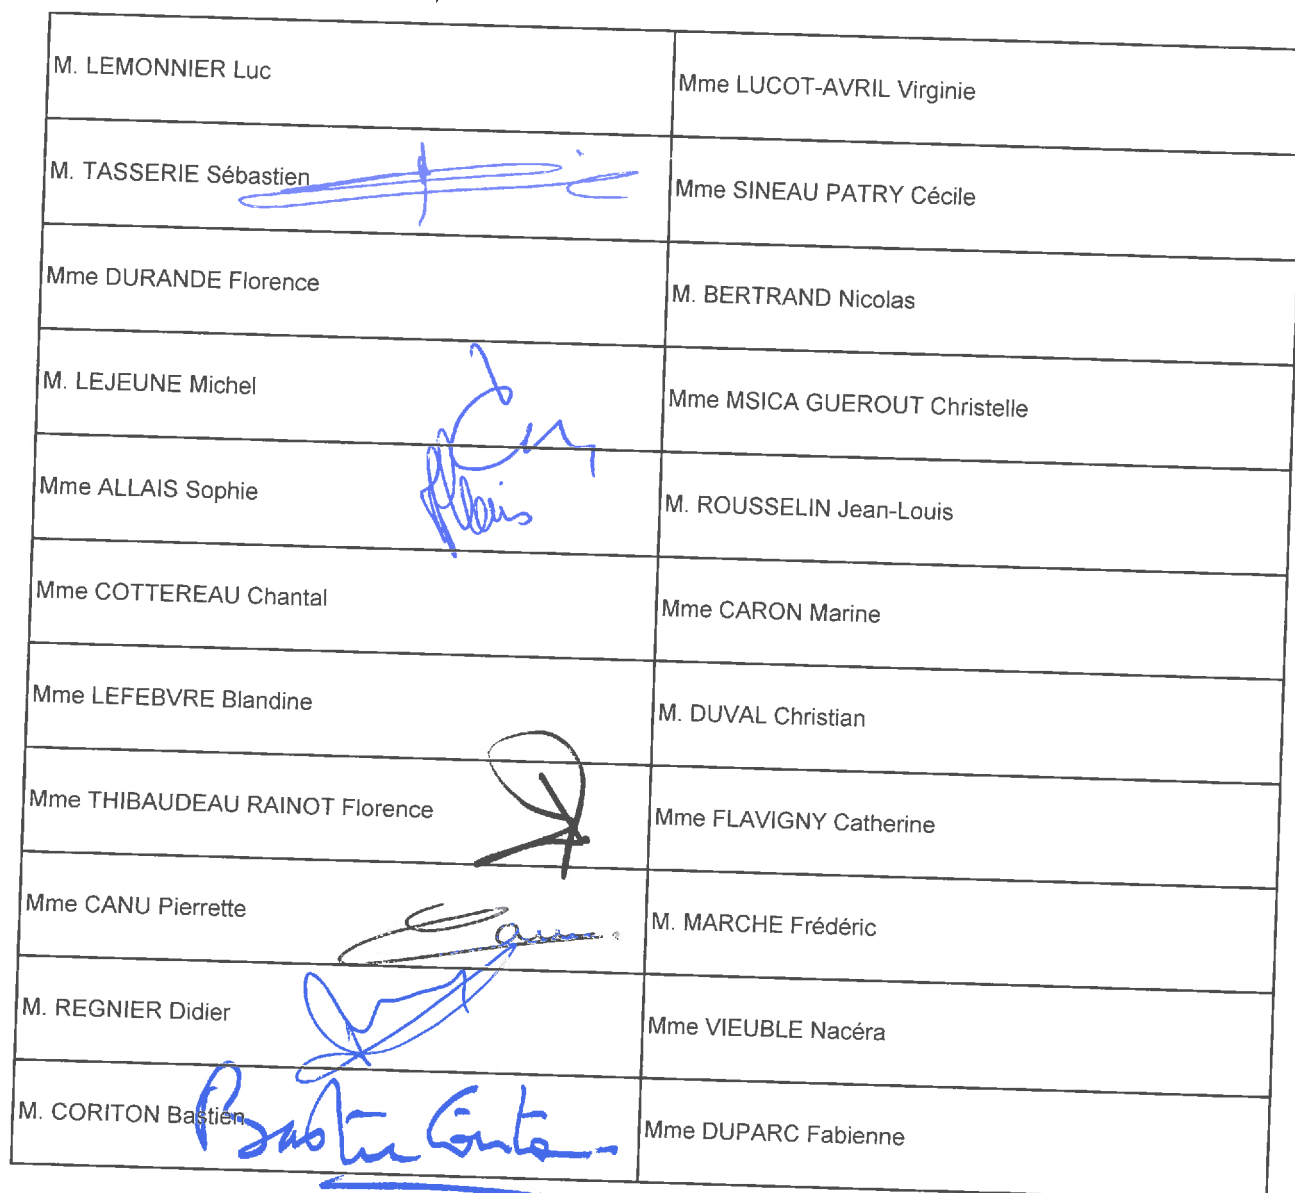 M. LEMONNIER Luc
Mme LUCOT-AVRIL Virginie
M. TASSERIE Sébastien
Mme SINEAU PATRY Cécile
Mme DURANDE Florence
M. BERTRAND Nicolas
M. LEJEUNE Michel
Mme MSICA GUEROUT Christelle
Mme ALLAIS Sophie
Allais
M. ROUSSELIN Jean-Louis
Mme COTTEREAU Chantal
Mme CARON Marine
Mme LEFEBVRE Blandine
M. DUVAL Christian
Mme THIBAUDEAU RAINOT Florence
Mme FLAVIGNY Catherine
Mme CANU Pierrette
M. MARCHE Frédéric
M. REGNIER Didier
Mme VIEUBLE Nacéra
M. CORITON Bastien
Bastien Coriton
Mme DUPARC Fabienne